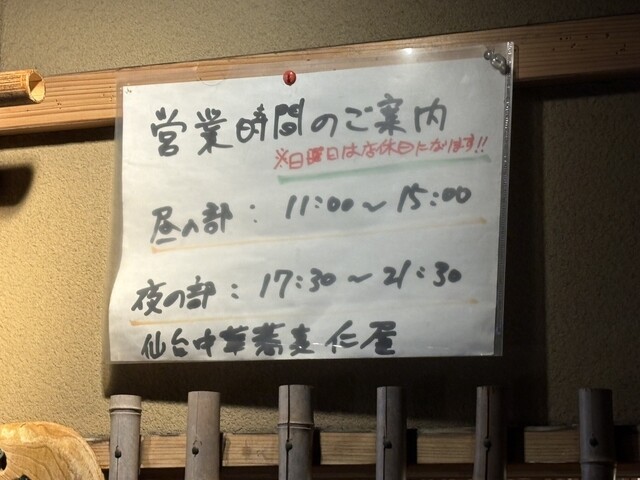 営業時間のご案内
※日曜日は店休日になります!!
昼の部：11:00～15:00
夜の部：17:30～21:30
仙台中華蕎麦 仁屋